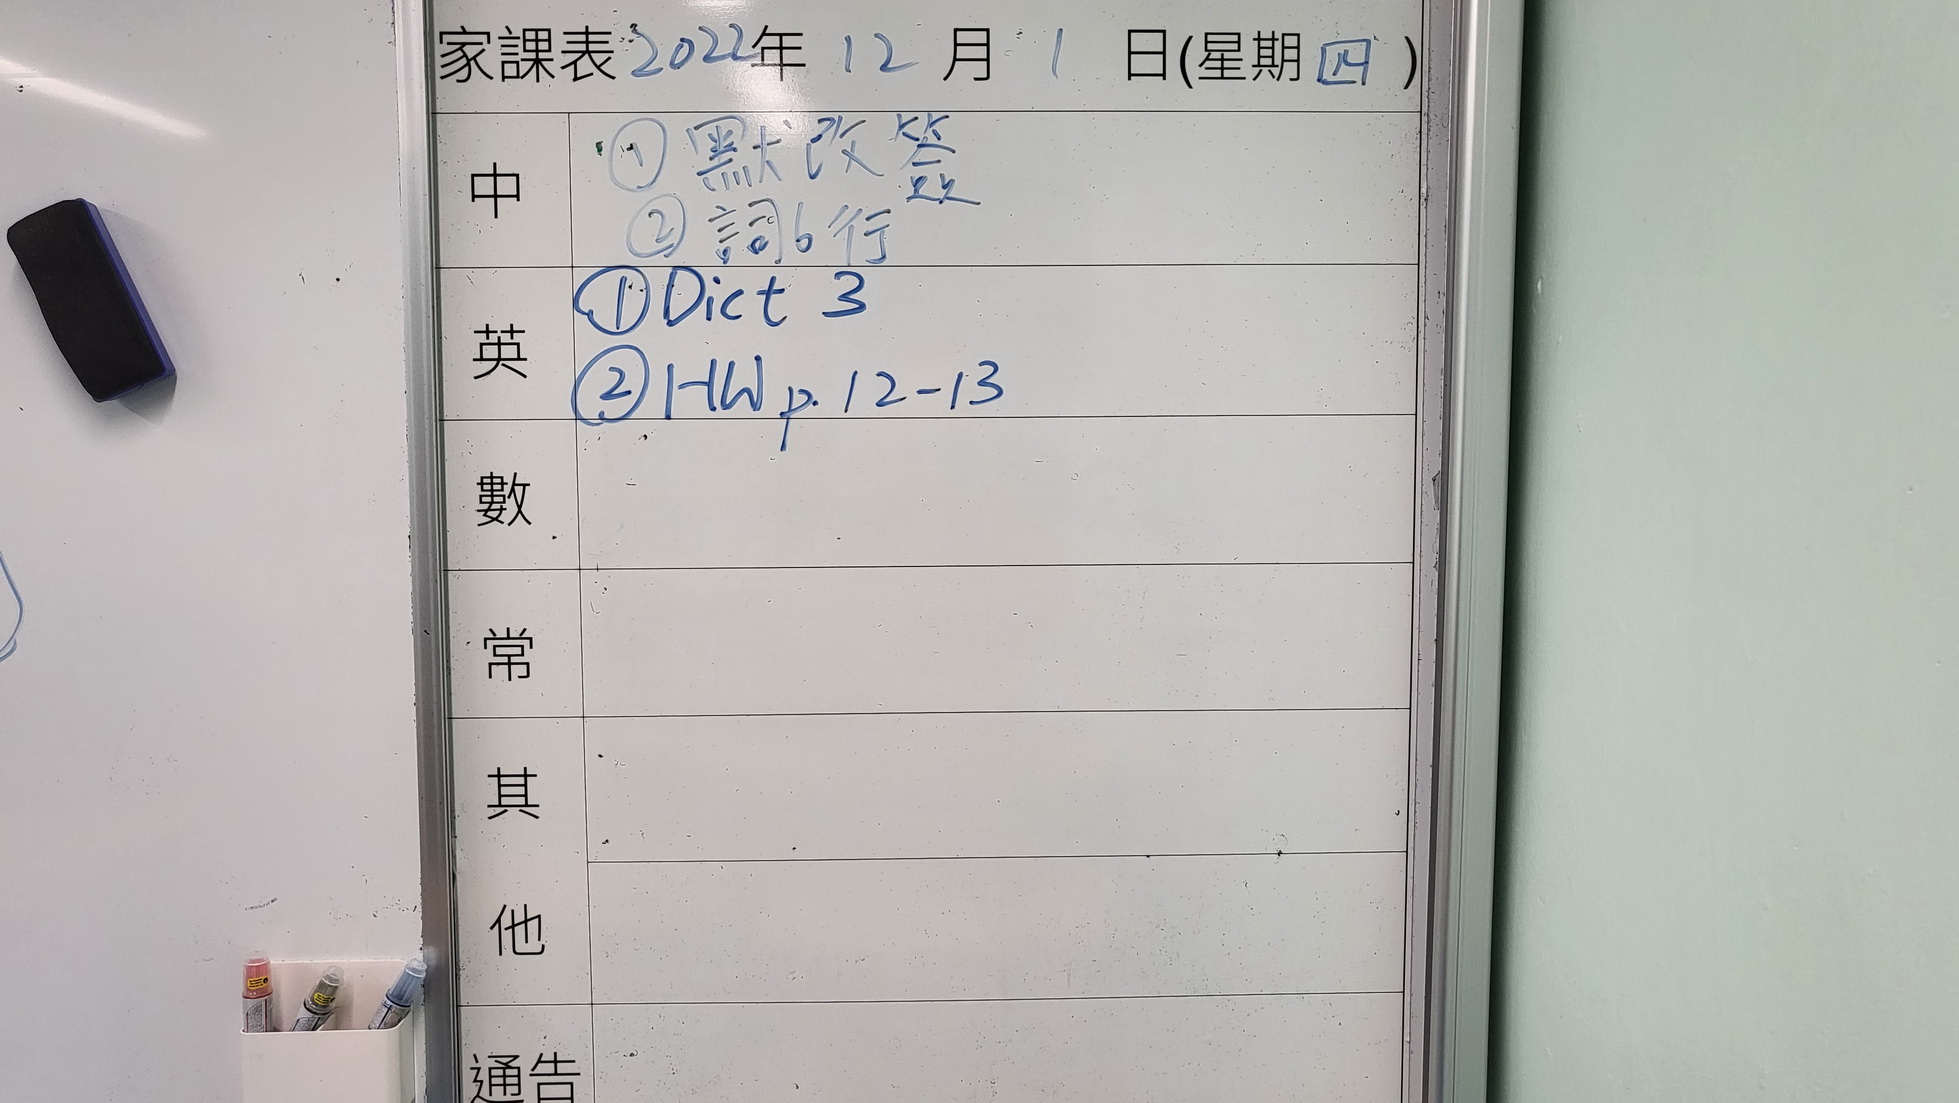 家課表 2022年 12 月 1 日(星期 四 )
中
① 默改簽
② 詞6行
英
① Dict 3
② HW p. 12-13
數
常
其
他
通告